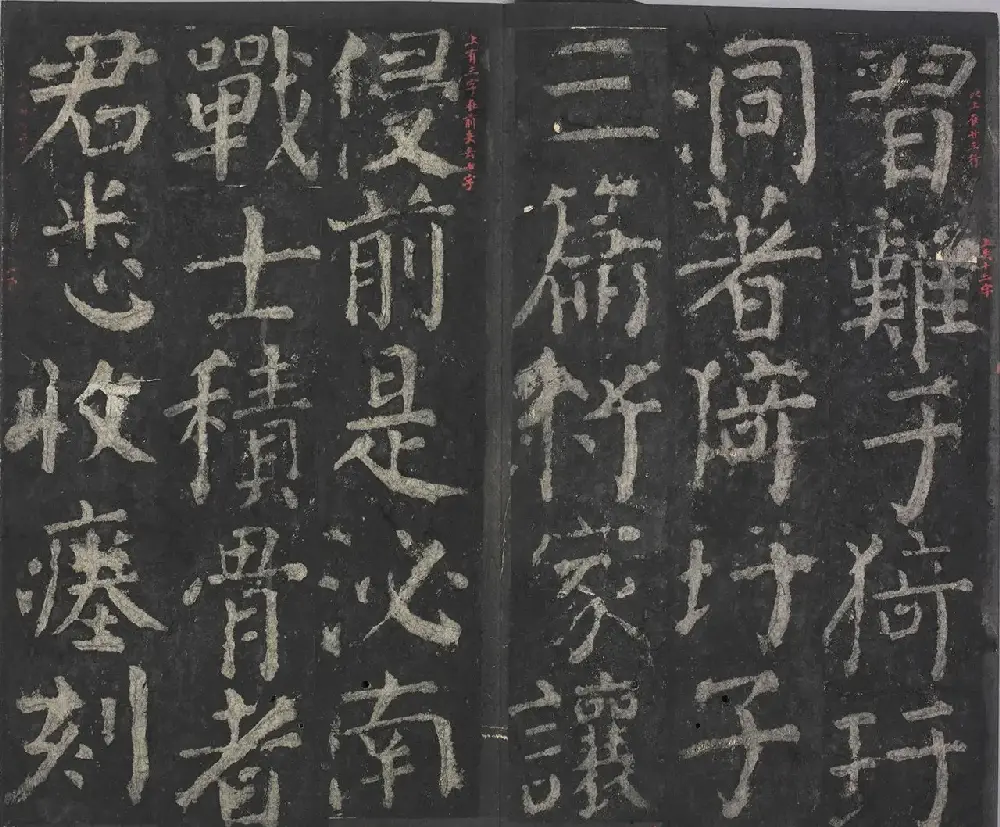 習難于猗玗
洞著猗玗子
三篇將家讓
侵前是泌南
戰士積骨者
君悉收瘞刻